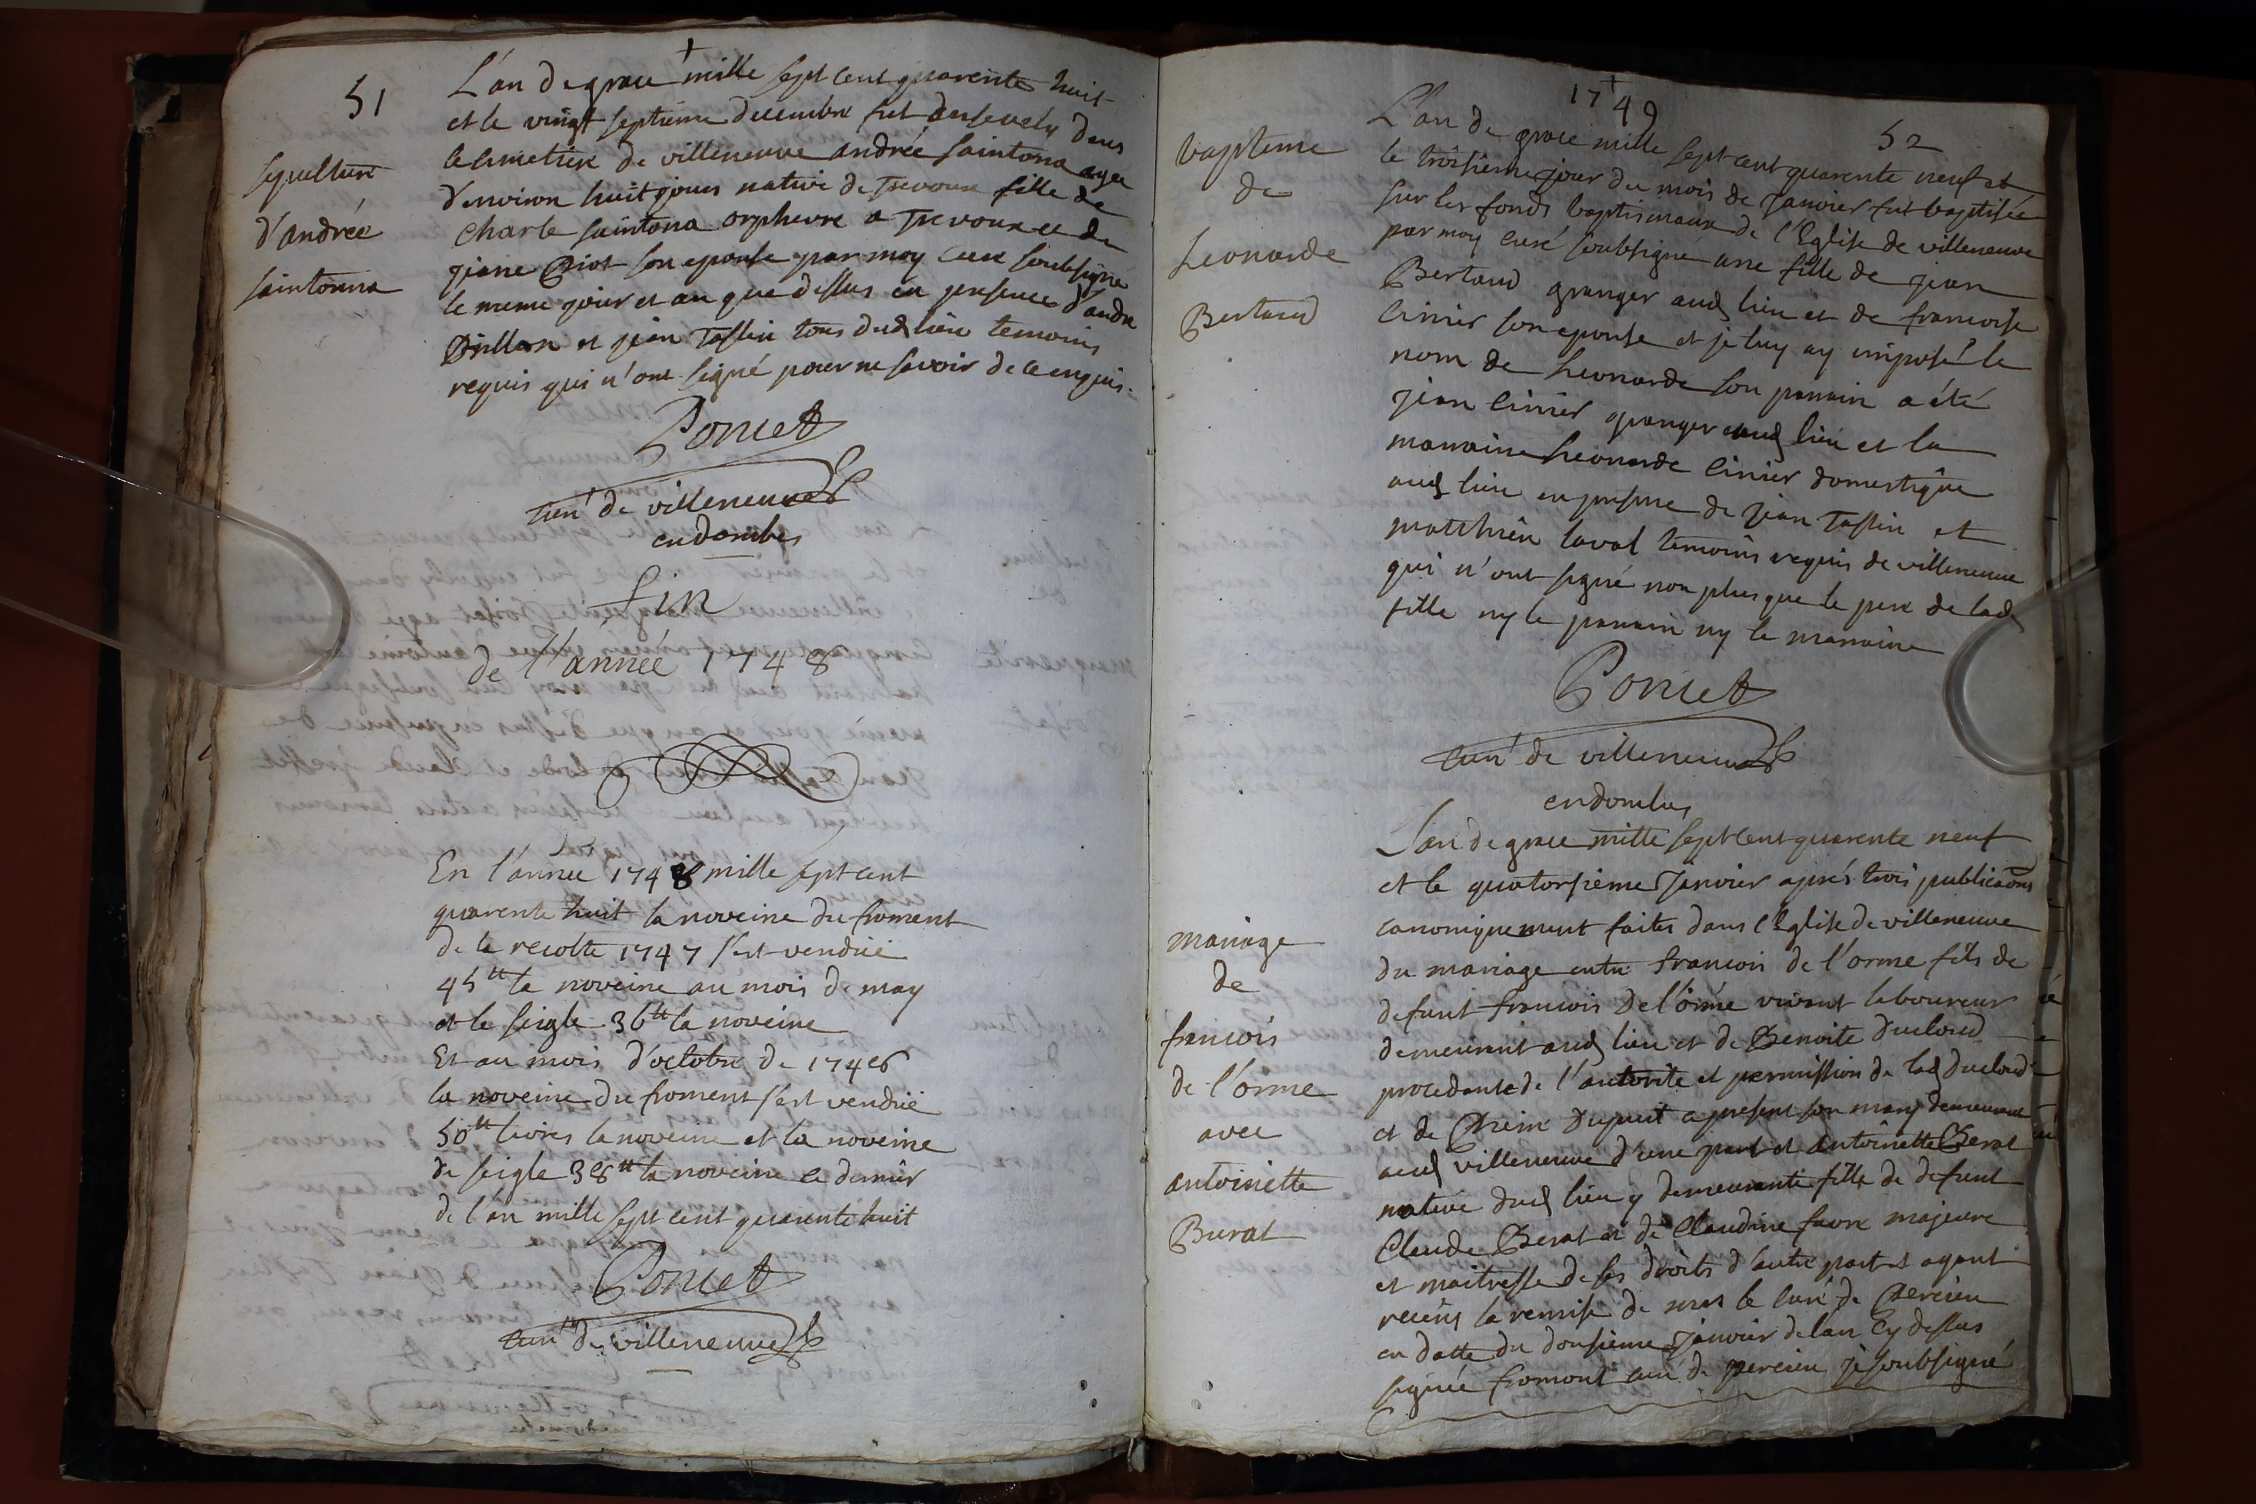 51
L'an de grace mille sept cent quarente huit
et le vingt septieme decembre fut ensevely dans
le cimetiere de villeneuve andreé saintona ageé
d'environ huit jours native de Trevoux fille de
charle saintona orphevre a Trevoux et de
jeane Biot son epouse par moy curé soubsigné
le meme jour et an que dessus en presence d'andre
Brillon et jean Taslin tous dud lieu temoins
requis qui n'ont signé pour ne savoir de ce enquis.
sepulture
d'andreé
saintonna
Poncet
curé de villeneuve
en dombes
fin
de l'année 1748
En l'annee 1748 mille sept cent
quarente huit la noveine du froment
de la recolte 1747 s'est vendue
45tt la noveine au mois de may
et le seigle 36tt la noveine
Et au mois d'octobre de 1748
la noveine du froment s'est vendue
50tt livres la noveine et la noveine
de seigle 38tt la noveine ce dernier
de l'an mille sept cent quarente huit
Poncet
curé de villeneuve
1749
52
bapteme
de
Leonarde
Bertaud
L'an de grace mille sept cent quarente neuf et
le troisieme jour du mois de janvier fut baptisée
sur les fonds baptismaux de l'Eglise de villeneuve
par moy curé soubsigné une fille de jean
Bertaud granger aud lieu et de francoise
Cinier son epouse et je luy ay imposé le
nom de Leonarde son parrain a été
jean Cinier granger aud lieu et la
marraine Leonarde Cinier domestique
aud lieu en presence de jean Taslin et
matthieu laval temoins requis de villeneuve
qui n'ont signé non plus que le pere de lad
fille ny le parrain ny la marraine
Poncet
curé de villeneuve
en dombes
mariage
de
francois
de l'orme
avec
antoinette
Burat
L'an de grace mille sept cent quarente neuf
et le quatorsieme janvier aprés trois publicaons
canoniquement faites dans l'Eglise de villeneuve
du mariage entre francois de l'orme fils de
defunt francois de l'orme vivant laboureur
demeurant aud lieu et de Benoite Ducloud
procedante de l'autorite et permission de lad Ducloud
et de Dupuit a present son mary demeurant
aud villeneuve d'une part et antoinette Berat
native dud lieu y demeurante fille de defunt
Claude Berat et de Claudine favre majeure
et maitresse de ses droits d'autre part ayant
receus la remise de mrs le curé de Percieu
en datte du dousieme janvier de l'an cy dessus
signée fromont curé de percieu je soubsigné